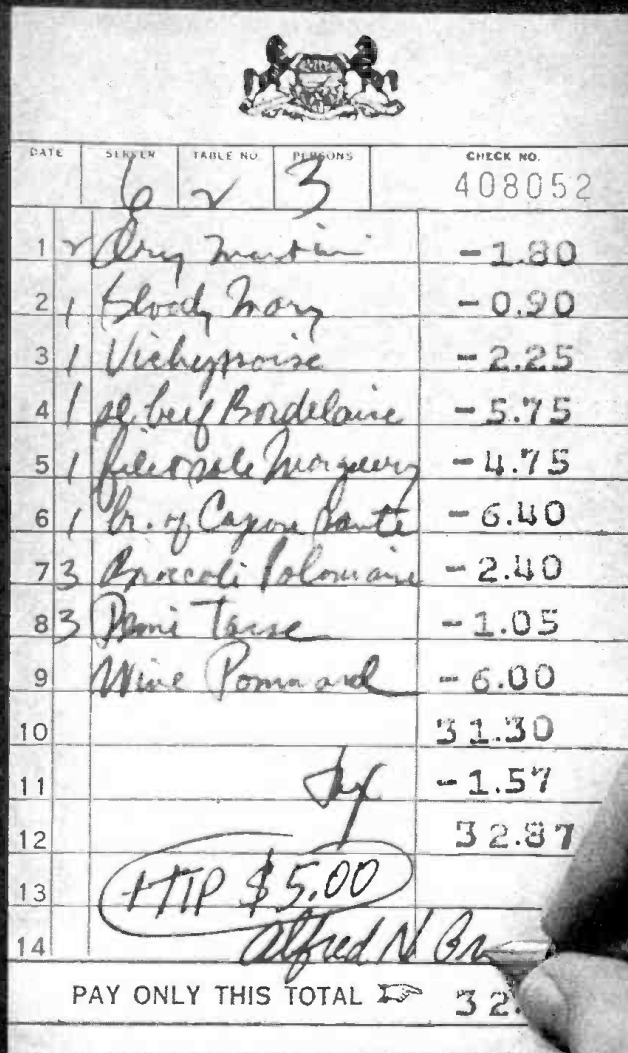 DATE SERVER TABLE NO. PERSONS CHECK NO.
6 2 3 408052
1 2 Dry Martini -1.80
2 1 bloody Mary -0.90
3 1 Vichyssoise -2.25
4 1 beef Bordelaise -5.75
5 1 filet sole Marguery -4.75
6 1 br. of Capon Saute -6.40
7 3 Broccoli Polonaise -2.40
8 3 Demi Tasse -1.05
9 Wine Pommard -6.00
10 31.30
11 Tax -1.57
12 32.87
13 +TIP $5.00
14 Alfred N
PAY ONLY THIS TOTAL 32.